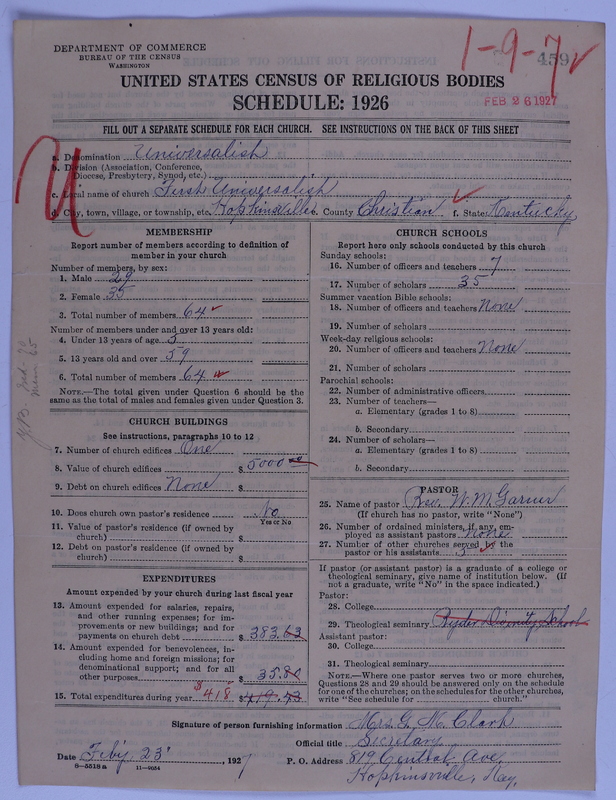 DEPARTMENT OF COMMERCE
BUREAU OF THE CENSUS
WASHINGTON
1-9-7
459
UNITED STATES CENSUS OF RELIGIOUS BODIES
SCHEDULE: 1926
FEB 26 1927
FILL OUT A SEPARATE SCHEDULE FOR EACH CHURCH. SEE INSTRUCTIONS ON THE BACK OF THIS SHEET
U
a. Denomination Universalish
b. Division (Association, Conference,
Diocese, Presbytery, Synod, etc.)
c. Local name of church First Universalish
d. City, town, village, or township, etc. Hopkinsville e. County Christian f. State Kentucky
MEMBERSHIP
Report number of members according to definition of
member in your church
Number of members, by sex:
1. Male 29
2. Female 35
3. Total number of members 64
Number of members under and over 13 years old:
4. Under 13 years of age 5
5. 13 years old and over 59
6. Total number of members 64
NOTE.—The total given under Question 6 should be the
same as the total of males and females given under Question 3.
CHURCH BUILDINGS
See instructions, paragraphs 10 to 12
7. Number of church edifices One
8. Value of church edifices $ 5000.00
9. Debt on church edifices None $
10. Does church own pastor's residence No
Yes or No
11. Value of pastor's residence (if owned by
church) $
12. Debt on pastor's residence (if owned by
church) $
EXPENDITURES
Amount expended by your church during last fiscal year
13. Amount expended for salaries, repairs,
and other running expenses; for im-
provements or new buildings; and for
payments on church debt $ 383.63
14. Amount expended for benevolences, in-
cluding home and foreign missions; for
denominational support; and for all
other purposes $ 35.80
15. Total expenditures during year $418 $419.43
CHURCH SCHOOLS
Report here only schools conducted by this church
Sunday schools:
16. Number of officers and teachers 7
17. Number of scholars 35
Summer vacation Bible schools:
18. Number of officers and teachers None
19. Number of scholars
Week-day religious schools:
20. Number of officers and teachers None
21. Number of scholars
Parochial schools:
22. Number of administrative officers
23. Number of teachers—
a. Elementary (grades 1 to 8)
b. Secondary
24. Number of scholars—
a. Elementary (grades 1 to 8)
b. Secondary
PASTOR
25. Name of pastor Rev. W. M. Garner
(If church has no pastor, write "None")
26. Number of ordained ministers, if any, em-
ployed as assistant pastors None
27. Number of other churches served by the
pastor or his assistants
If pastor (or assistant pastor) is a graduate of a college or
theological seminary, give name of institution below. (If
not a graduate, write "No" in the space indicated.)
Pastor:
28. College
29. Theological seminary Ryder Divinity School
Assistant pastor:
30. College
31. Theological seminary
NOTE.—Where one pastor serves two or more churches,
Questions 28 and 29 should be answered only on the schedule
for one of the churches; on the schedules for the other churches,
write "See schedule for church."
Signature of person furnishing information Mrs. G. M. Clark
Official title Secretary
Date Feb'y 23' , 1927 P. O. Address 819 Central Ave,
8-5518 a 11-9034 Hopkinsville, Key.